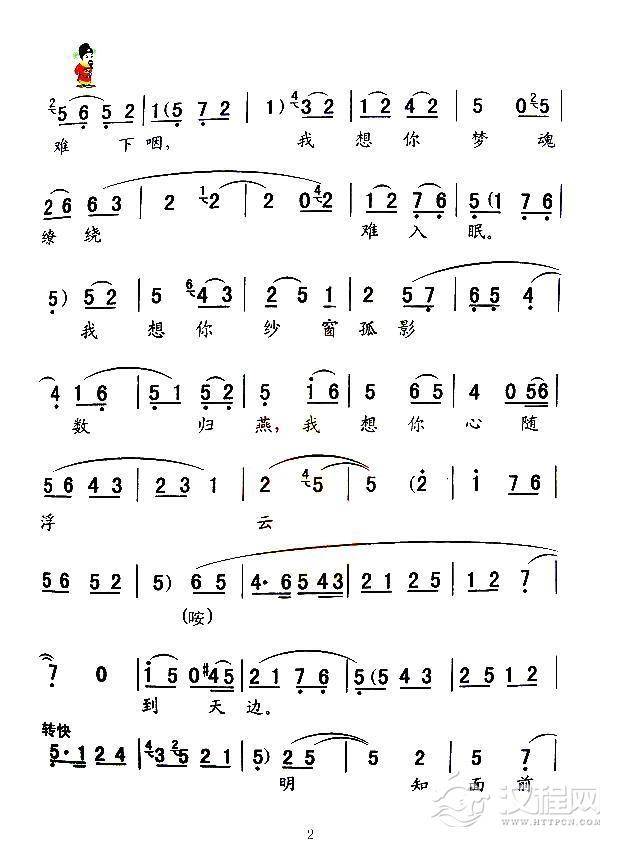 2 5 6 5 2 | 1 ( 5 7 2 | 1 ) 4 3 2 | 1 2 4 2 | 5 0 2 5 |
难 下 咽， 我 想 你 梦 魂
2 6 6 3 | 2 1 2 | 2 0 4 2 | 1 2 7 6 | 5 ( 1 7 6 |
缭 绕 难 入 眠。
5 ) 5 2 | 5 6 4 3 | 2 5 1 2 | 2 5 7 | 6 5 4 |
我 想 你 纱 窗 孤 影
4 1 6 | 5 1 5 2 | 5 i 6 | 5 6 5 2 | 4 0 5 6 |
数 归 燕，我 想 你 心 随
5 6 4 3 | 2 3 1 | 2 4 5 | 5 ( 2 | i 7 6 |
浮 云
5 6 5 2 | 5 ) 6 5 | 4 · 6 5 4 3 | 2 1 2 5 | 1 2 7 |
(咹)
7 0 | i 5 0 #4 5 | 2 1 7 6 | 5 ( 5 4 3 | 2 5 1 2 |
到 天 边。
转快
5 · 1 2 4 | 4 3 2 5 2 1 | 5 ) 2 5 | 5 2 | 5 7 |
明 知 面 前
汉程网
HTTPCN.COM
2